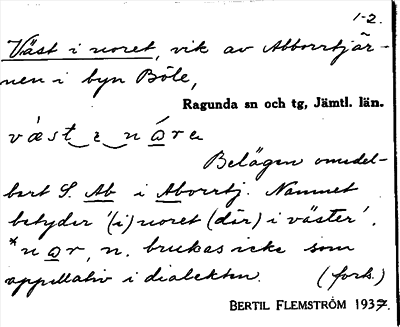 1-2.
Väst i noret, vik av Abborrtjär-
nen i byn Böle,
Ragunda sn och tg, Jämtl. län.
väst i nɷre
Belägen omedel-
bart S. Ab i Abborrtj. Namnet
betyder '(i) noret (där) i väster'.
*nɷr, n. brukas icke som
appellativ i dialekten. (forts.)
BERTIL FLEMSTRÖM 1937.